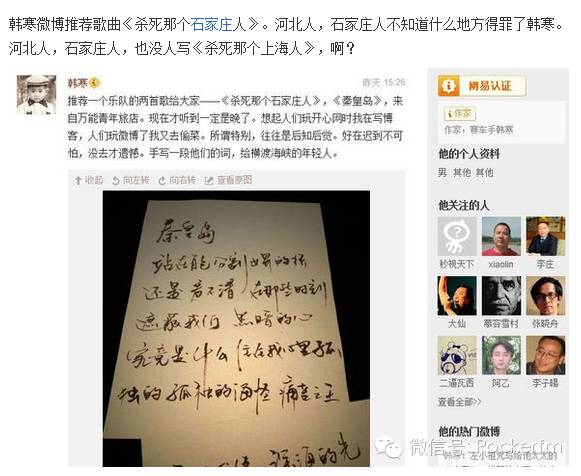 韩寒微博推荐歌曲《杀死那个石家庄人》。河北人，石家庄人不知道什么地方得罪了韩寒。
河北人，石家庄人，也没人写《杀死那个上海人》，啊？
韩寒
昨天 15:26
推荐一个乐队的两首歌给大家——《杀死那个石家庄人》，《秦皇岛》，来
自万能青年旅店。现在才听到一定是晚了。想起人们玩开心网时我在写博
客，人们玩微博了我又去偷菜。所谓特别，往往是后知后觉。好在迟到不可
怕，没去才遗憾。手写一段他们的词，给横渡海峡的年轻人。
收起 向左转 向右转 查看原图
秦皇岛
站在能分割世界的桥
还是看不清 在那些时刻
遮蔽我们 黑暗的心
究竟是什么 住在我心里孤
独的 孤独的海怪 痛苦之王
深海的光
网易认证
作家
作家，赛车手韩寒
他的个人资料
男 其他 其他
他关注的人
秒视天下 xiaolin 李庄
大仙 慕容雪村 张晓舟
二逼瓦西 阿乙 李子暘
查看全部>>
他的热门微博
韩寒：左小祖咒写给他太太的
微信号: Rockerfm